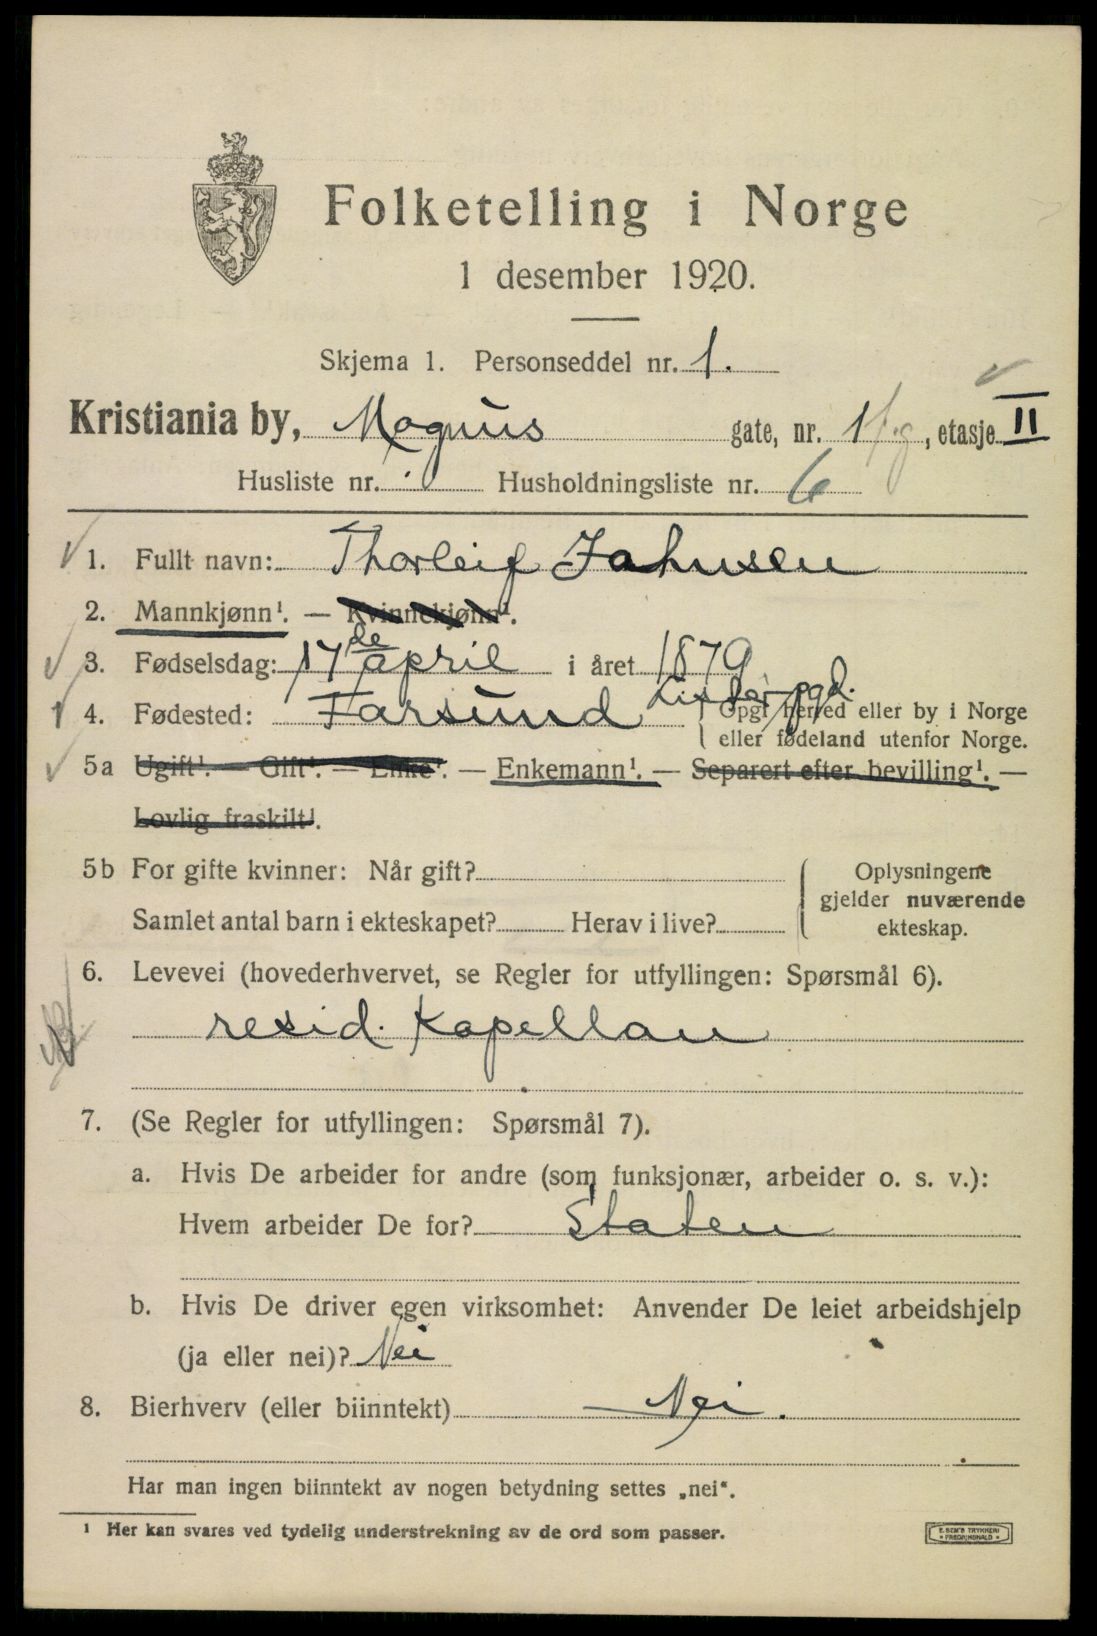 Folketelling i Norge
1 desember 1920.
Skjema 1. Personseddel nr. 1.
Kristiania by, Magnus gate, nr. 1 , etasje II
Husliste nr. Husholdningsliste nr. 6
1. Fullt navn: Thorleif Jahnsen
2. Mannkjønn¹. — Kvinnekjønn¹.
3. Fødselsdag: 17de april i året 1879
4. Fødested: Farsund Lister pgd. Opgi herred eller by i Norge
eller fødeland utenfor Norge.
5a Ugift¹. — Gift¹. — Enke¹. — Enkemann¹. — Separert efter bevilling¹. —
Lovlig fraskilt¹.
5b For gifte kvinner: Når gift? Oplysningene
gjelder nuværende
Samlet antal barn i ekteskapet? Herav i live? ekteskap.
6. Levevei (hovederhvervet, se Regler for utfyllingen: Spørsmål 6).
resid. Kapellan
7. (Se Regler for utfyllingen: Spørsmål 7).
a. Hvis De arbeider for andre (som funksjonær, arbeider o. s. v.):
Hvem arbeider De for? Staten
b. Hvis De driver egen virksomhet: Anvender De leiet arbeidshjelp
(ja eller nei)? Nei
8. Bierhverv (eller biinntekt) Nei.
Har man ingen biinntekt av nogen betydning settes „nei“.
¹ Her kan svares ved tydelig understrekning av de ord som passer.
E. SEM'S TRYKKERI
FREDRIKSHALD